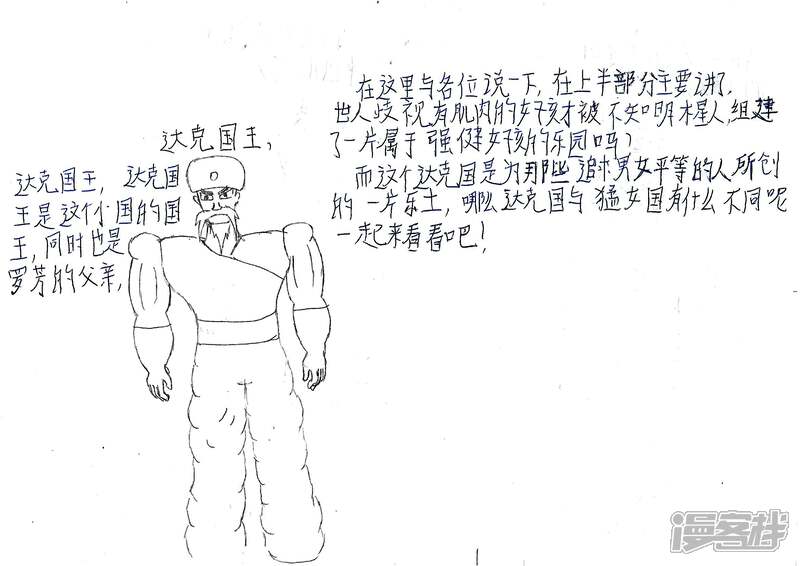 达克国王,
达克国王, 达克国
王是这个小国的国
王, 同时也是
罗芳的父亲,
在这里与各位说一下, 在上半部分主要讲了,
世人歧视有肌肉的女孩才被不知明木星人, 组建
了一片属于强健女孩的乐园吗?
而这个达克国是为那些追求男女平等的人所创
的一片乐土, 哪么达克国与猛女国有什么不同呢
一起来看看吧!
1
漫客栈